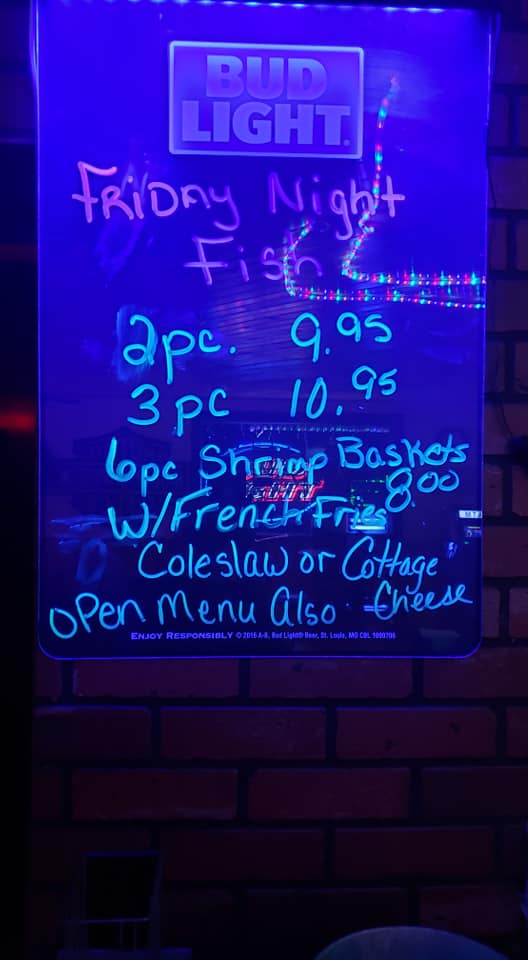 BUD
LIGHT
FRIDAY Night
Fish
2pc. 9.95
3 pc 10.95
6pc Shrimp Baskets
8.00
W/French Fries
Coleslaw or Cottage
Cheese
OPen Menu Also
ENJOY RESPONSIBLY © 2016 A-B, Bud Light® Beer, St. Louis, MO